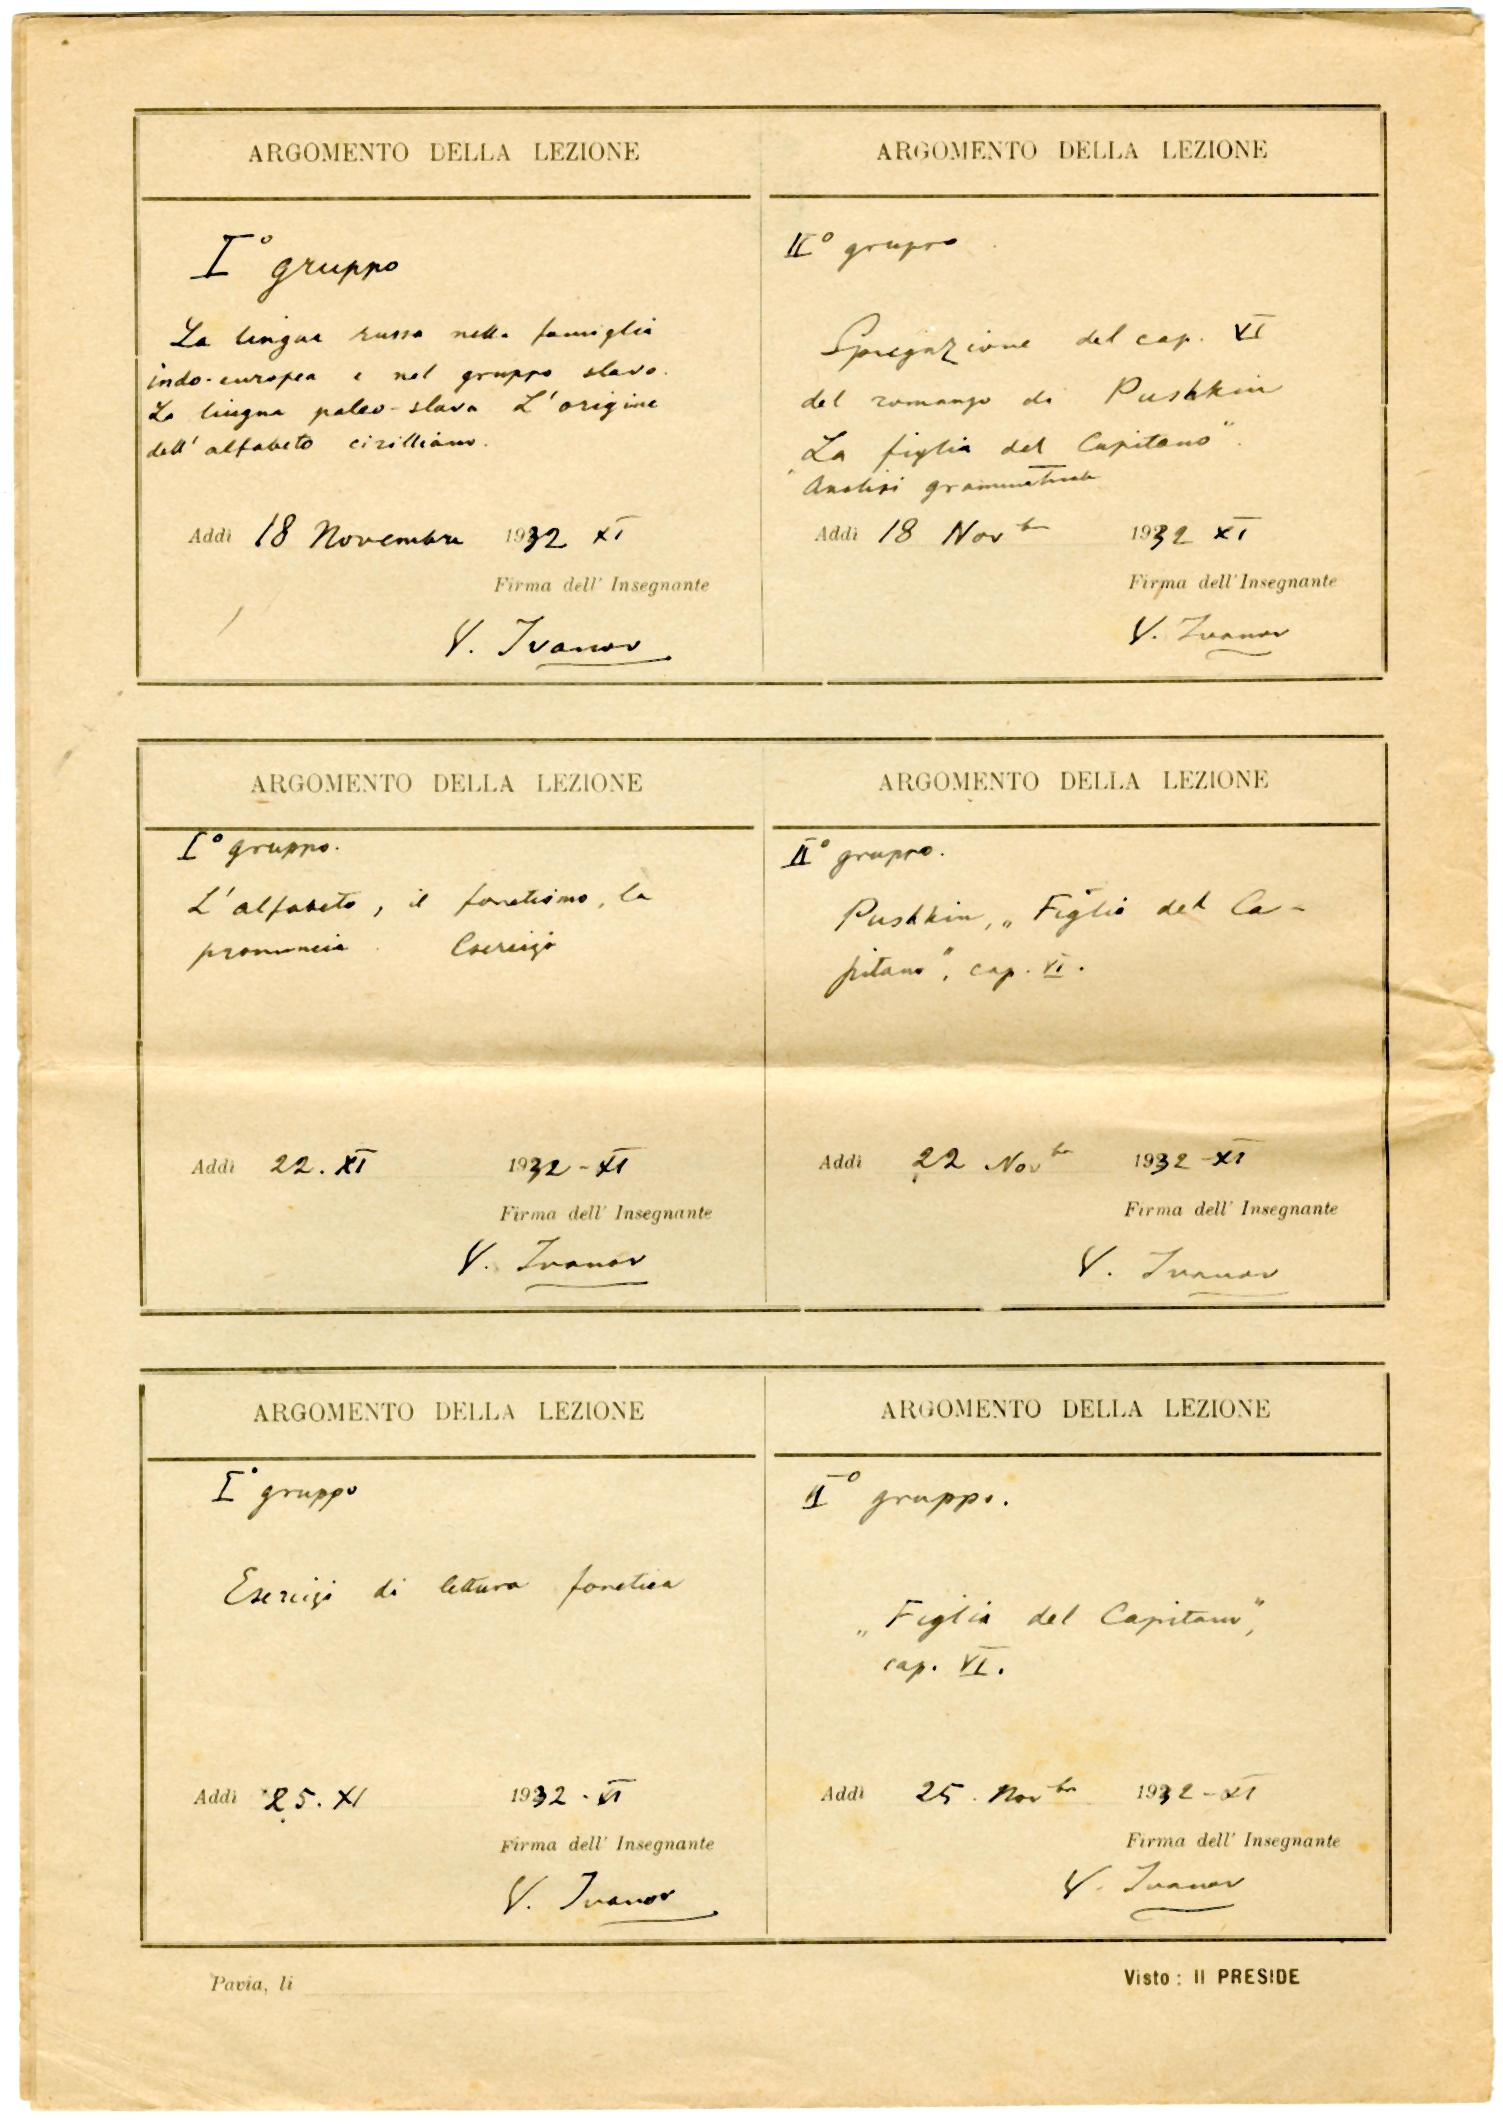 ARGOMENTO DELLA LEZIONE
I° gruppo
La lingua russa nella famiglia
indo-europea e nel gruppo slavo.
La lingua paleo-slava L'origine
dell'alfabeto cirilliano.
Addì 18 Novembre 1932 XI
Firma dell' Insegnante
V. Ivanov
ARGOMENTO DELLA LEZIONE
II° gruppo
Spiegazione del cap. VI
del romanzo di Pushkin
"La figlia del Capitano".
Analisi grammaticale
Addì 18 Novbre 1932 XI
Firma dell' Insegnante
V. Ivanov
ARGOMENTO DELLA LEZIONE
I° gruppo.
L'alfabeto, il fonetismo, la
pronuncia. Esercizi
Addì 22. XI 1932 - XI
Firma dell' Insegnante
V. Ivanov
ARGOMENTO DELLA LEZIONE
II° gruppo.
Pushkin, „Figlia del Ca-
pitano", cap. VI.
Addì 22 Novbre 1932 - XI
Firma dell' Insegnante
V. Ivanov
ARGOMENTO DELLA LEZIONE
I° gruppo
Esercizi di lettura fonetica
Addì 25. XI 1932 - XI
Firma dell' Insegnante
V. Ivanov
ARGOMENTO DELLA LEZIONE
II° gruppo.
„Figlia del Capitano",
cap. VI.
Addì 25. Novbre 1932 - XI
Firma dell' Insegnante
V. Ivanov
Pavia, li
Visto: Il PRESIDE